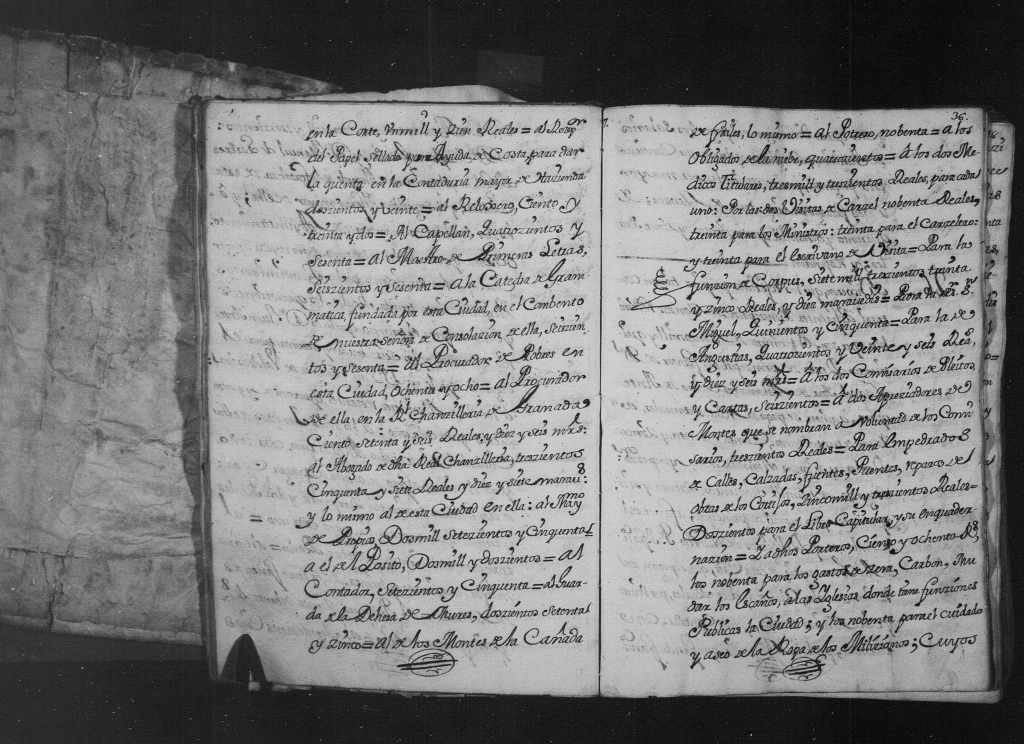 en la Corte, Vnmill y Zien Reales = al Rezepr
del Papel Sellado para Ayuda de Costa, para dar
la quenta en la Contaduria mayor de Hazienda
doszientos y Veinte = al Reloxero, Ciento y
treinta y dos = Al Capellan, Quatrozientos y
Sesenta = al Maestro de Primeras Letras,
Seiszientos y sesenta = a la Catedra de Gram-
matica, fundada por esta Ciudad, en el Combento
de nuestra señora de Consolazion de ella, seiszien
tos y sesenta = al Procurador de Pobres en
esta Ciudad, ochenta y ocho = al Procurador
de ella, en la Rl Chanzilleria de Granada
Ciento Setenta y seis Reales, y diez y seis mrs:
al Abogado de dha Real Chanzilleria, treszientos
Cinquenta y Siete Reales y diez y siete maraus:
y lo mismo al de esta Ciudad en ella: al Maymo
de Propios, Dosmill Setezientos y Cinquenta
a el del Posito, Dosmill y doszientos = al
Contador, Setezientos y Cinquenta = al Guar-
da de la Dehesa de doszientos setenta
y zinco = al de los Montes de la Cañada
36.
de frailes, lo mismo = al Potrero, nobenta = a los
Obligados de la niebe, quatrozientos = a los dos Me-
dicos Titulares, tresmill y treszientos Reales, para cada
uno: Por las dos Visitas de Carzel nobenta Reales,
treinta para los Ministros: treinta para el Carzelero:
y treinta para el Escrivano de Visita = Para la
funzion de Corpus, Siete mill, treszientos treinta
y zinco Reales, y diez marauedis = Para la de Sn
Miguel, Quinientos y Cinquenta = Para la de
Angustias, Quatrozientos y Veinte y seis Rs,
y diez y seis mrs = a los dos Comisarios de Pleitos,
y Cartas, Seiszientos = a dos Apreziadores de
Montes que se nombran a Voluntad de los Comi
sarios, treszientos Reales = Para Empedrados
de Calles, Calzadas, fuentes, Puentes, reparos de
obras de los Cortijos, Zincomill y treszientos Reales =
Doszientos para el Libro Capitular, y su enquader
nazion = a dhos Porteros, Ciento y ochenta Rs,
los nobenta para los gastos de Zera, Carbon, Mu
dar los Escaños, a las Yglesias donde tiene funziones
Publicas la Ciudad; y los nobenta para el cuidado
y aseo de la Ropa de los Milizianos; Cuyos